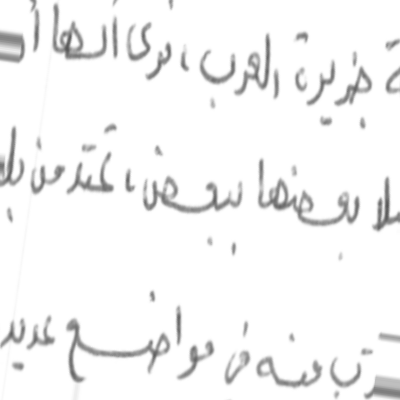 ة جزيرة العرب، نرى أنها أ
لا بعضها ببعض، تمتد من بلا
رب منه في مواضع عديد